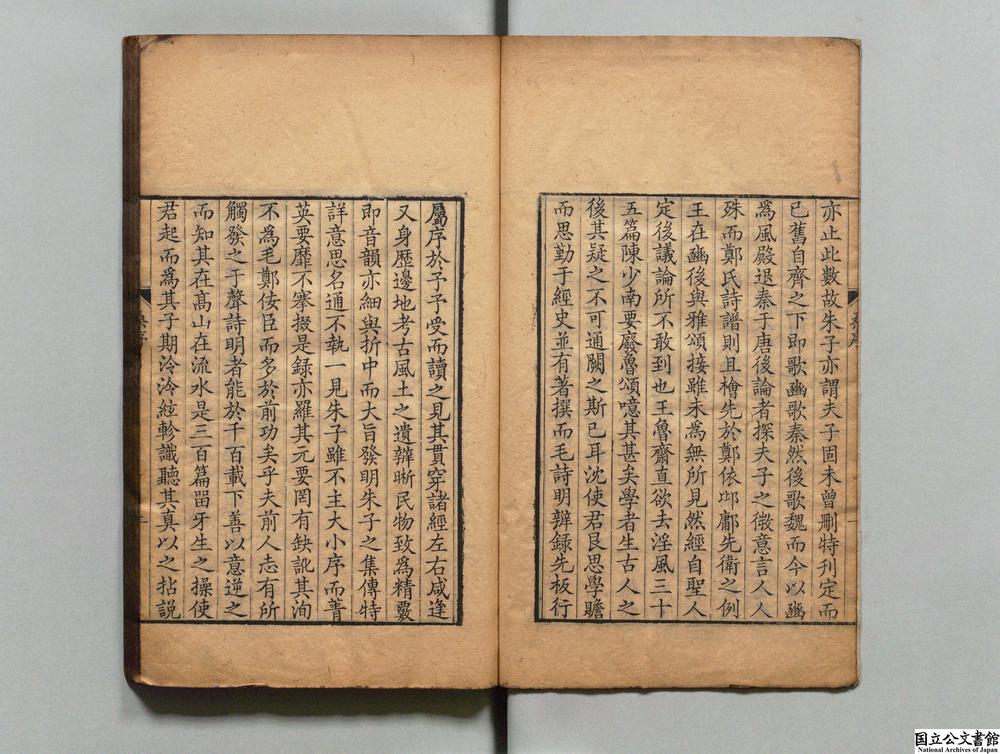 亦止此數故朱子亦謂夫子固未曾刪特刊定而
已舊自齊之下即歌豳歌秦然後歌魏而今以豳
為風殿退秦于唐後論者探夫子之微意言人人
殊而鄭氏詩譜則且檜先於鄭依邶鄘先衛之例
王在豳後與雅頌接雖未為無所見然經自聖人
定後議論所不敢到也王魯齋直欲去淫風三十
五篇陳少南要廢魯頌噫其甚矣學者生古人之
後其疑之不可通闕之斯已耳沈使君艮思學贍
而思勤于經史並有著撰而毛詩明辨錄先板行
屬序於予予受而讀之見其貫穿諸經左右咸逢
又身歷邊地考古風土之遺辨晰民物致為精覈
即音韻亦細與折中而大旨發明朱子之集傳特
詳意思名通不執一見朱子雖不主大小序而菁
英要靡不搴掇是録亦羅其元要罔有缺訛其洵
不為毛鄭佞臣而多於前功矣乎夫前人志有所
觸發之于聲詩明者能於千百載下善以意逆之
而知其在髙山在流水是三百篇畱牙生之操使
君起而為其子期泠泠絃軫識聽其真以之拈説
國立公文書館
National Archives of Japan